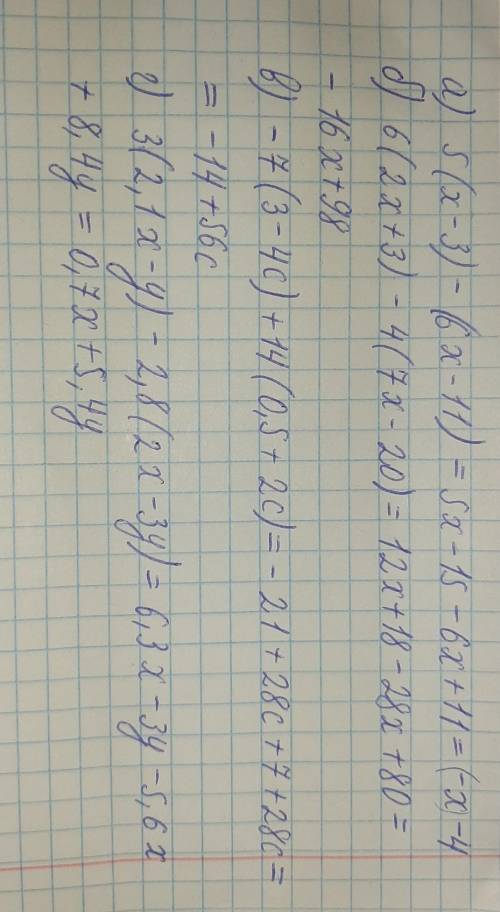 а) 5(x-3) - (6x-11) = 5x-15-6x+11 = (-x)-4
б) 6(2x+3) - 4(7x-20) = 12x+18-28x+80 =
- 16x+98
в) -7(3-4c)+14(0,5+2c) = -21+28c+7+28c =
= -14+56c
г) 3(2,1x-y) - 2,8(2x-3y) = 6,3x-3y-5,6x
+ 8,4y = 0,7x+5,4y